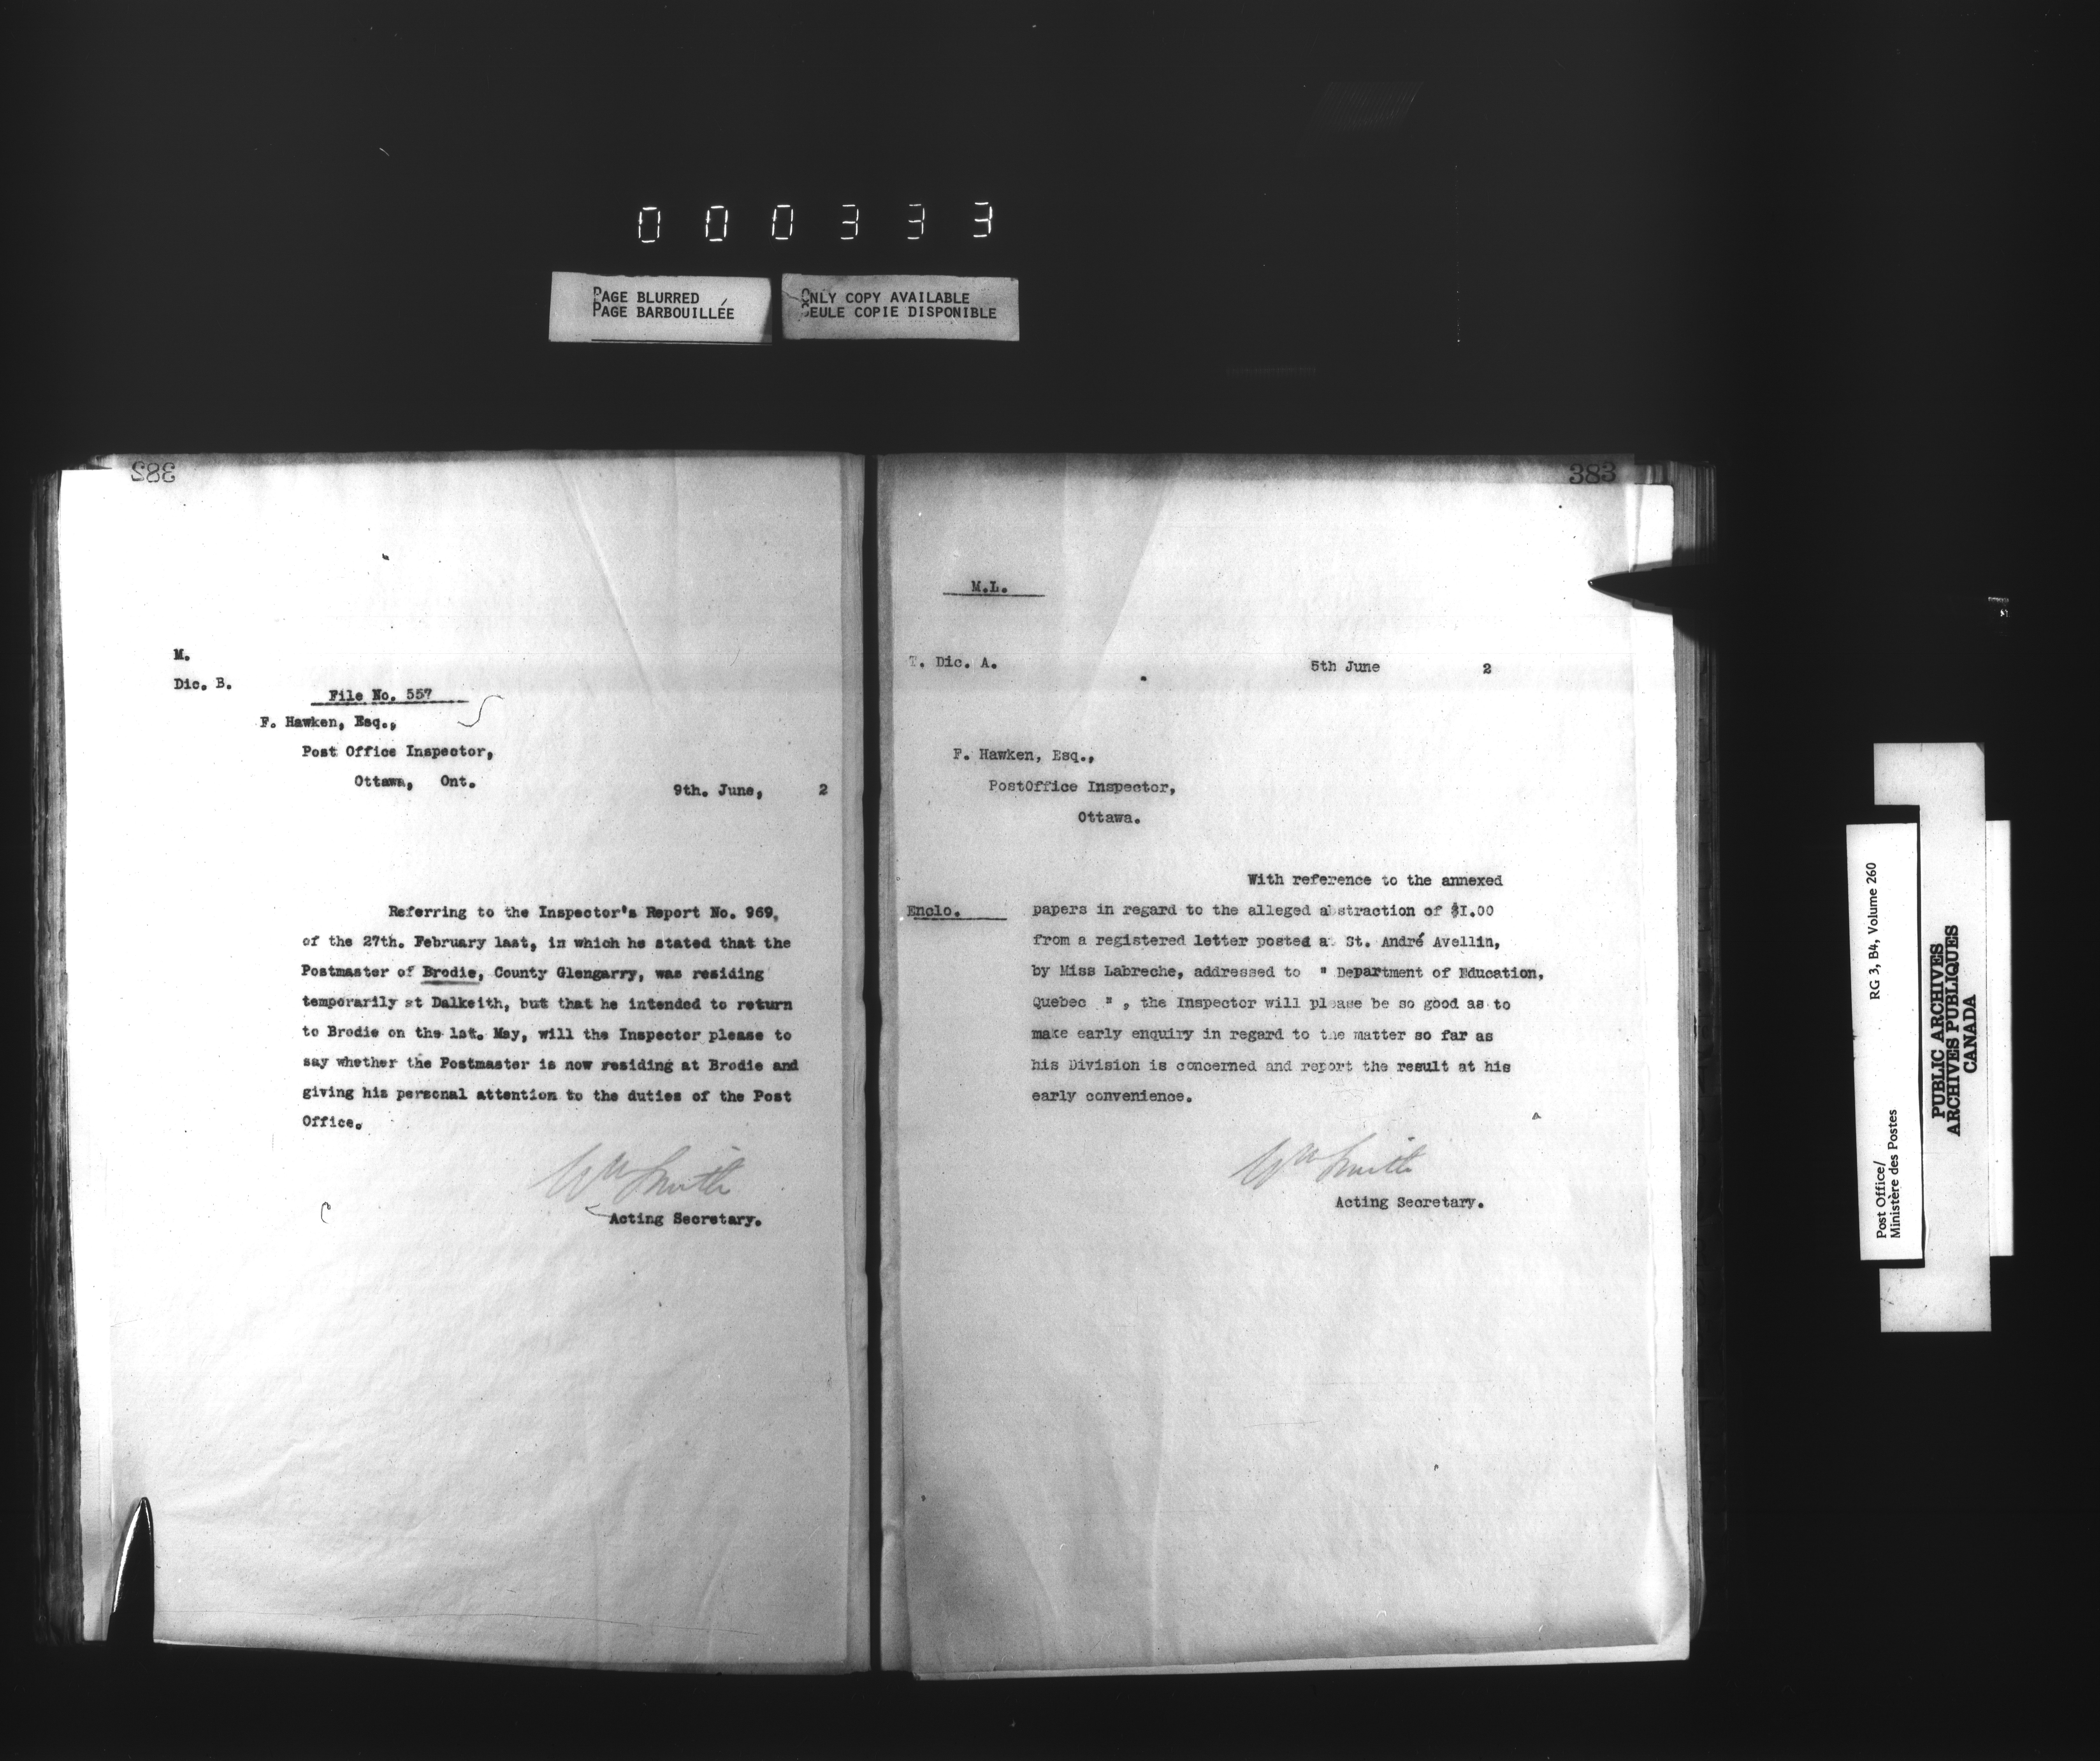 000333
PAGE BLURRED
PAGE BARBOUILLÉE
ONLY COPY AVAILABLE
SEULE COPIE DISPONIBLE
382
M.
Dic. B.
File No. 557
F. Hawken, Esq.,
Post Office Inspector,
Ottawa, Ont.
9th. June, 2
Referring to the Inspector's Report No. 969,
of the 27th. February last, in which he stated that the
Postmaster of Brodie, County Glengarry, was residing
temporarily at Dalkeith, but that he intended to return
to Brodie on the 1st. May, will the Inspector please to
say whether the Postmaster is now residing at Brodie and
giving his personal attention to the duties of the Post
Office.
Wm Smith
Acting Secretary.
383
M.L.
T. Dic. A.
5th June 2
F. Hawken, Esq.,
PostOffice Inspector,
Ottawa.
With reference to the annexed
Enclo. papers in regard to the alleged abstraction of $1.00
from a registered letter posted at St. André Avellin,
by Miss Labreche, addressed to " Department of Education,
Quebec " , the Inspector will please be so good as to
make early enquiry in regard to the matter so far as
his Division is concerned and report the result at his
early convenience.
Wm Smith
Acting Secretary.
Post Office/
Ministère des Postes
RG 3, B4, Volume 260
PUBLIC ARCHIVES
ARCHIVES PUBLIQUES
CANADA